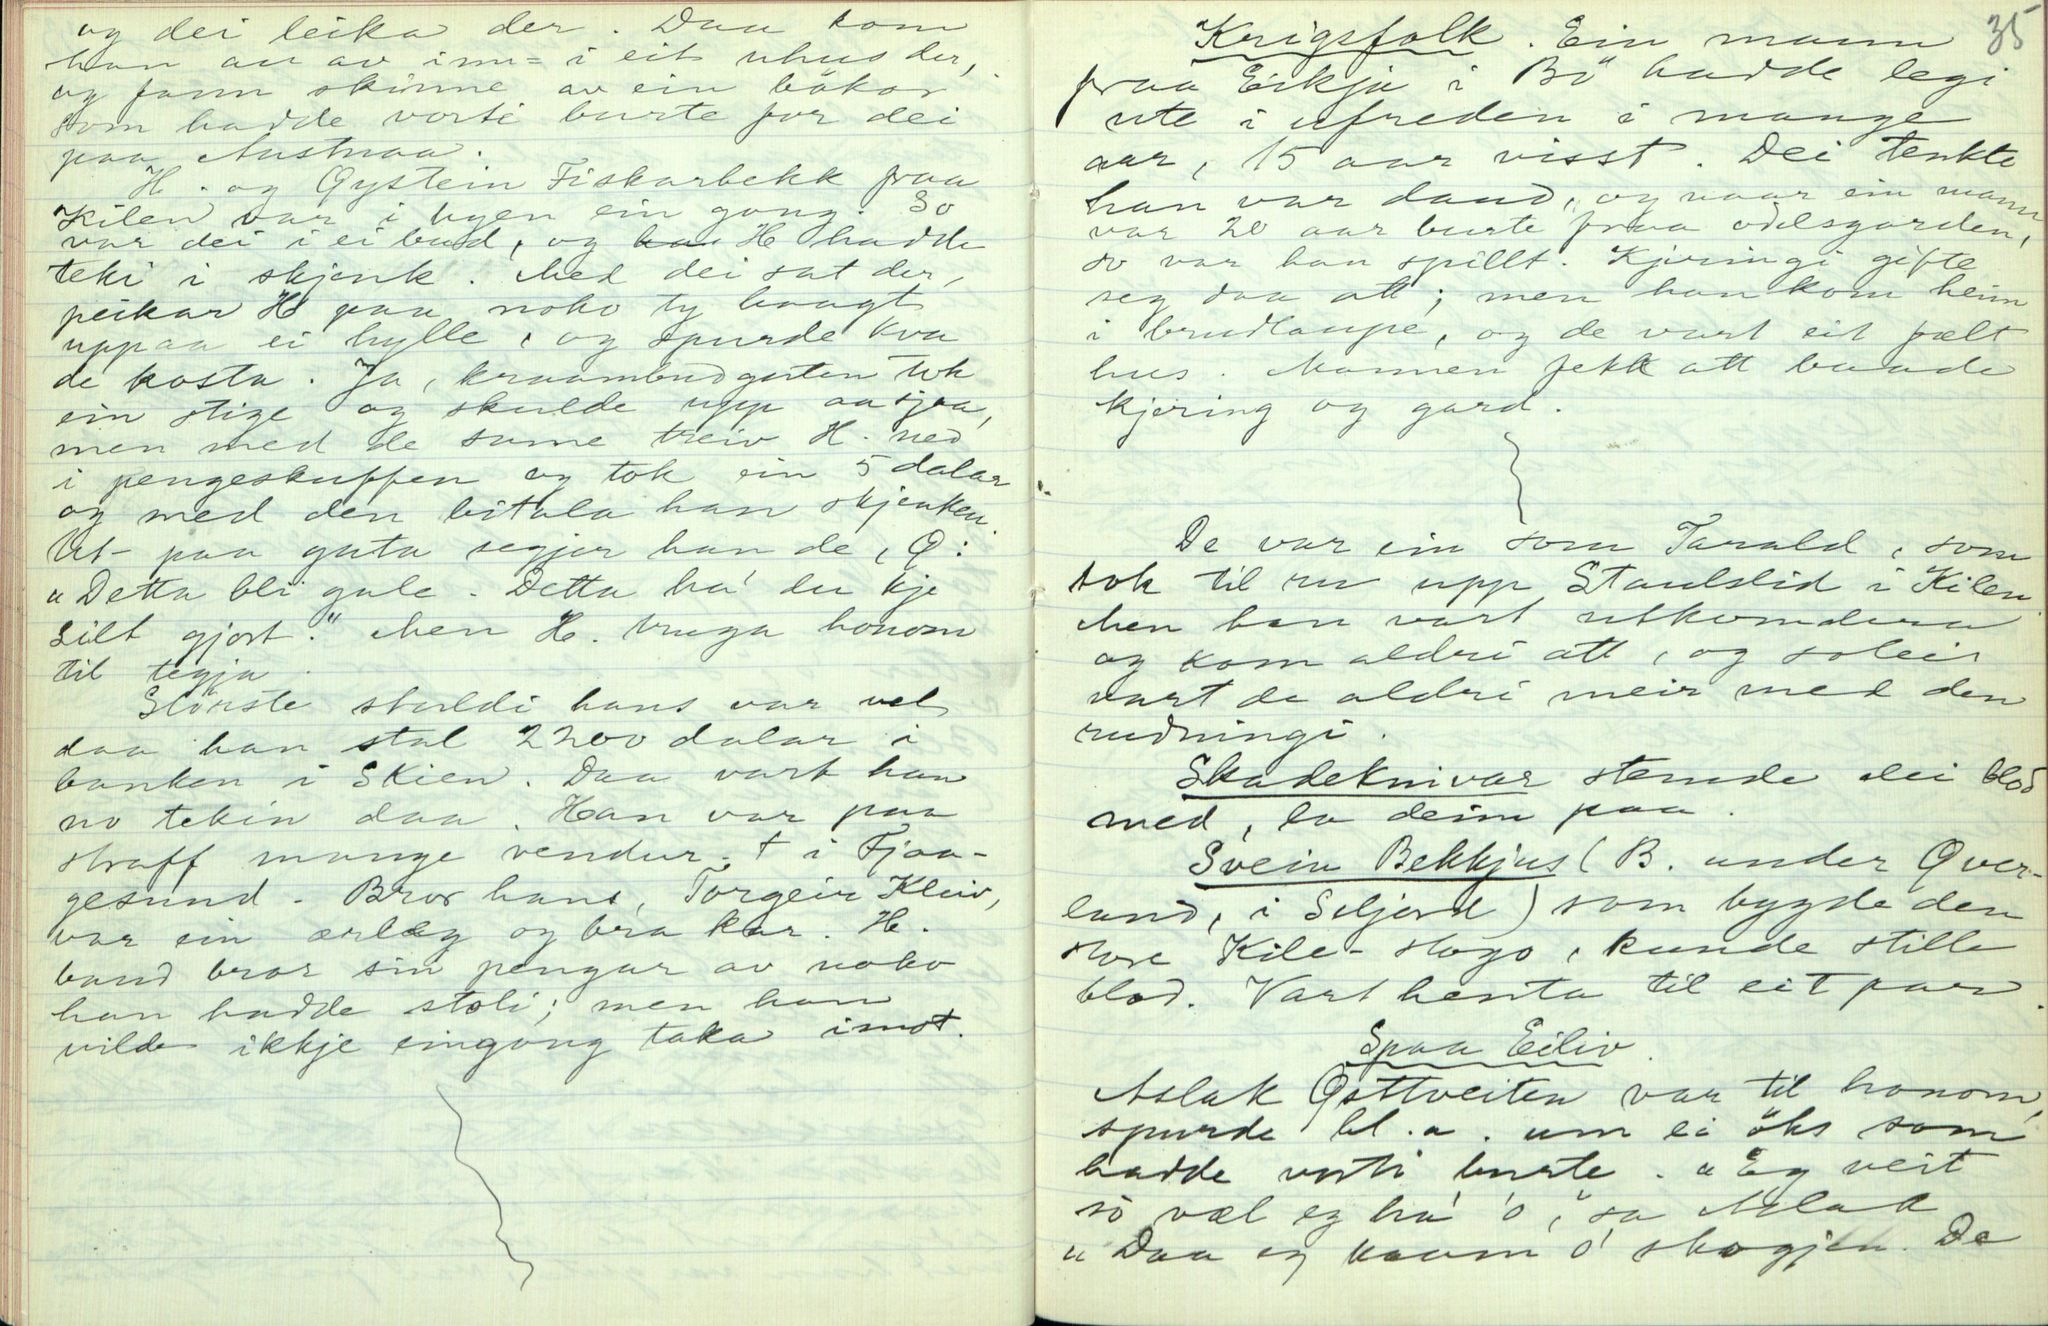 og dei leika der. Daa kom
han au av inn = i eit uhus der,
og fann skinne av ein bökar
som hadde vorti burte for dei
paa Austnaa.
H. og Øystein Fiskarbekk fraa
Kilen var i byen ein gong. So
var dei i ei bud, og H hadde
teki i skjenk. Med dei sat der,
peikar H paa noko ty haagt
uppaa ei hylle, og spurde kva
de kosta. Ja, kraambudguten tok
ein stige og skulde upp aa sjaa,
men med de same treiv H. ned
i pengeskuffen og tok ein 5 dalar
og med den bitala han skjenken.
Ut paa guta segjer han de, Ø:
"Detta bli gale. Detta ha' du kje
silt gjort." Men H. truga honom
til tegja.
Störste stuldi hans var vel
daa han stal 2200 dalar i
banken i Skien. Daa vart han
no tekin daa. Han var paa
straff mange vendur. † i Fjaa-
gesund. Bror hans, Torgeir Kleiv,
var ein ærleg og bra kar. H.
baud bror sin pengar av noko
han hadde stoli; men han
vilde ikkje eingong taka imot.
35
Krigsfolk. Ein mann
fraa Eikja i Bö hadde legi
ute i ufreden i mange
aar, 15 aar visst. Dei tenkte
han var daud, og naar ein mann
var 20 aar burte fraa odelsgarden,
so var han spillt. Kjeringi gifte
seg daa att; men han kom heim
i brudlaupe, og de vart eit fælt
hus. Mannen fekk att baade
kjering og gard.
De var ein som Tarald, som
tok til ru upp Staulslid i Kilen.
Men han vart utkomdera
og kom aldri att, og soleis
vart de aldri meir med den
rudningi.
Skadeknivar stemde dei blod
med, la deim paa.
Svein Bekkjus (B. under Øver-
land, i Seljord) som bygde den
store Kile-stogo, kunde stille
blod. Vart henta til eit par.
Spaa Eiliv.
Aslak Østtveiten var til honom,
spurde bl. a. um ei öks som
hadde vorti burte. "Eg veit
so væl eg ha' o," sa Aslak
"Daa eg kaam o' skogjen. De